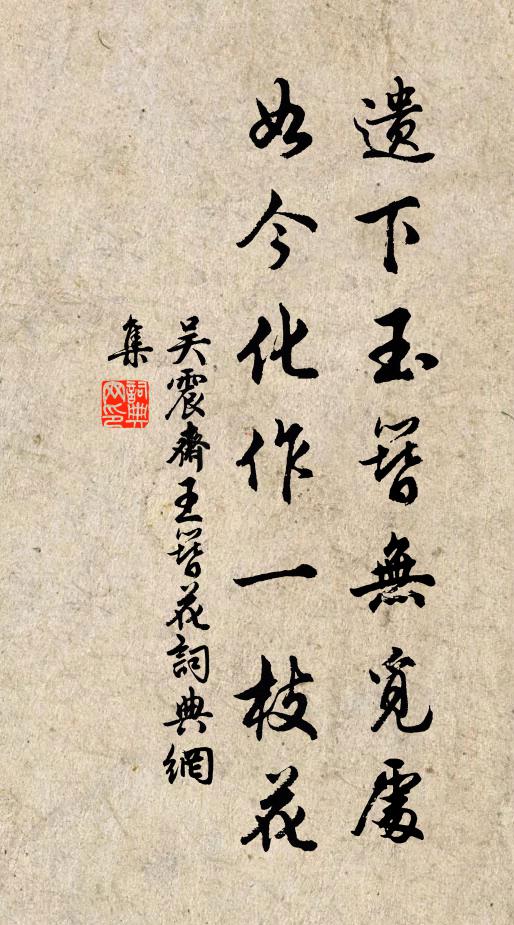 遺下玉簪無覓處
如今化作一枝花
吴震齋玉簪花詞典網
集
詞典
网